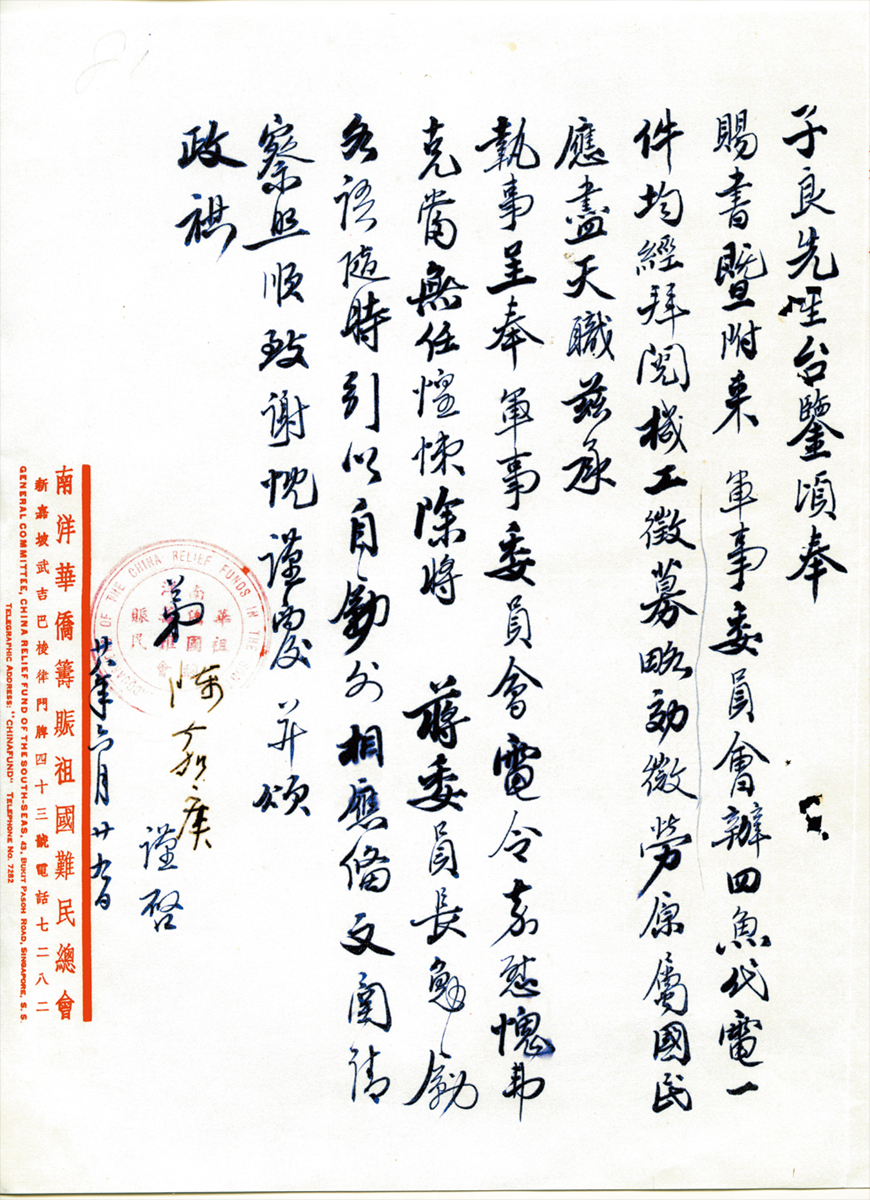 子良先生台鑒頃奉
賜書暨附來 軍事委員會辦四魚代電一
件均經拜閱機工徵募略効微勞原屬國民
應盡天職茲承
執事呈奉軍事委員會電令嘉慰愧弗
克當無任惶悚除將 蔣委員長勉勵
各語隨時引以自勵外相應備文函請
察照順致謝忱謹覆并頌
政祺
弟 陳嘉庚 謹啓
廿八年六月廿九日
OF THE CHINA RELIEF FUNDS IN THE
南洋華僑籌賑祖國難民總會
新嘉坡武吉巴梭律門牌四十三號電話七二八二
GENERAL COMMITTEE, CHINA RELIEF FUND OF THE SOUTH-SEAS, 43, BUKIT PASOH ROAD, SINGAPORE, S. S.
TELEGRAPHIC ADDRESS: "CHINAFUND" TELEPHONE NO. 7282